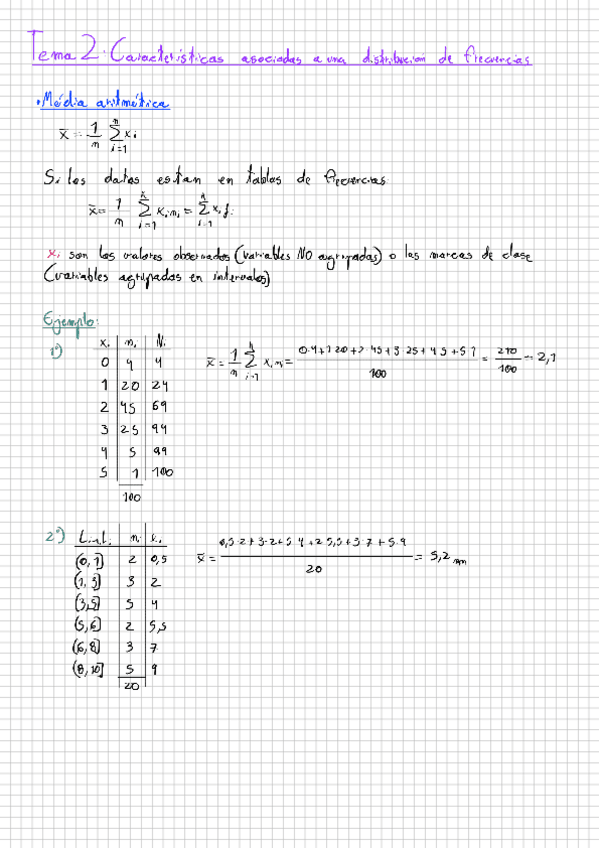 Tema 2: Características asociadas a una distribución de frecuencias
• Média aritmética
x̄ = 1/n Σ(i=1, n) xi
Si los datos estan en tablas de frecuencias:
x̄ = 1/n Σ(i=1, k) xi ni = Σ(i=1, k) xi fi
xi son los valores observados (variables NO agrupadas) o las marcas de clase
(variables agrupadas en intervalos)
Ejemplo:
1º)
xi ni Ni
0 4 4
1 20 24
2 45 69
3 25 94
4 5 99
5 1 100
100
x̄ = 1/n Σ(i=1, k) xi ni = (0·4+1·20+2·45+3·25+4·5+5·1)/100 = 210/100 = 2,1
2º) Li-1, Li ni xi
(0,1] 2 0,5
(1,3] 3 2
(3,5] 5 4
(5,6] 2 5,5
(6,8] 3 7
(8,10] 5 9
20
x̄ = (0,5·2+3·2+5·4+2·5,5+3·7+5·9)/20 = 5,2 mm